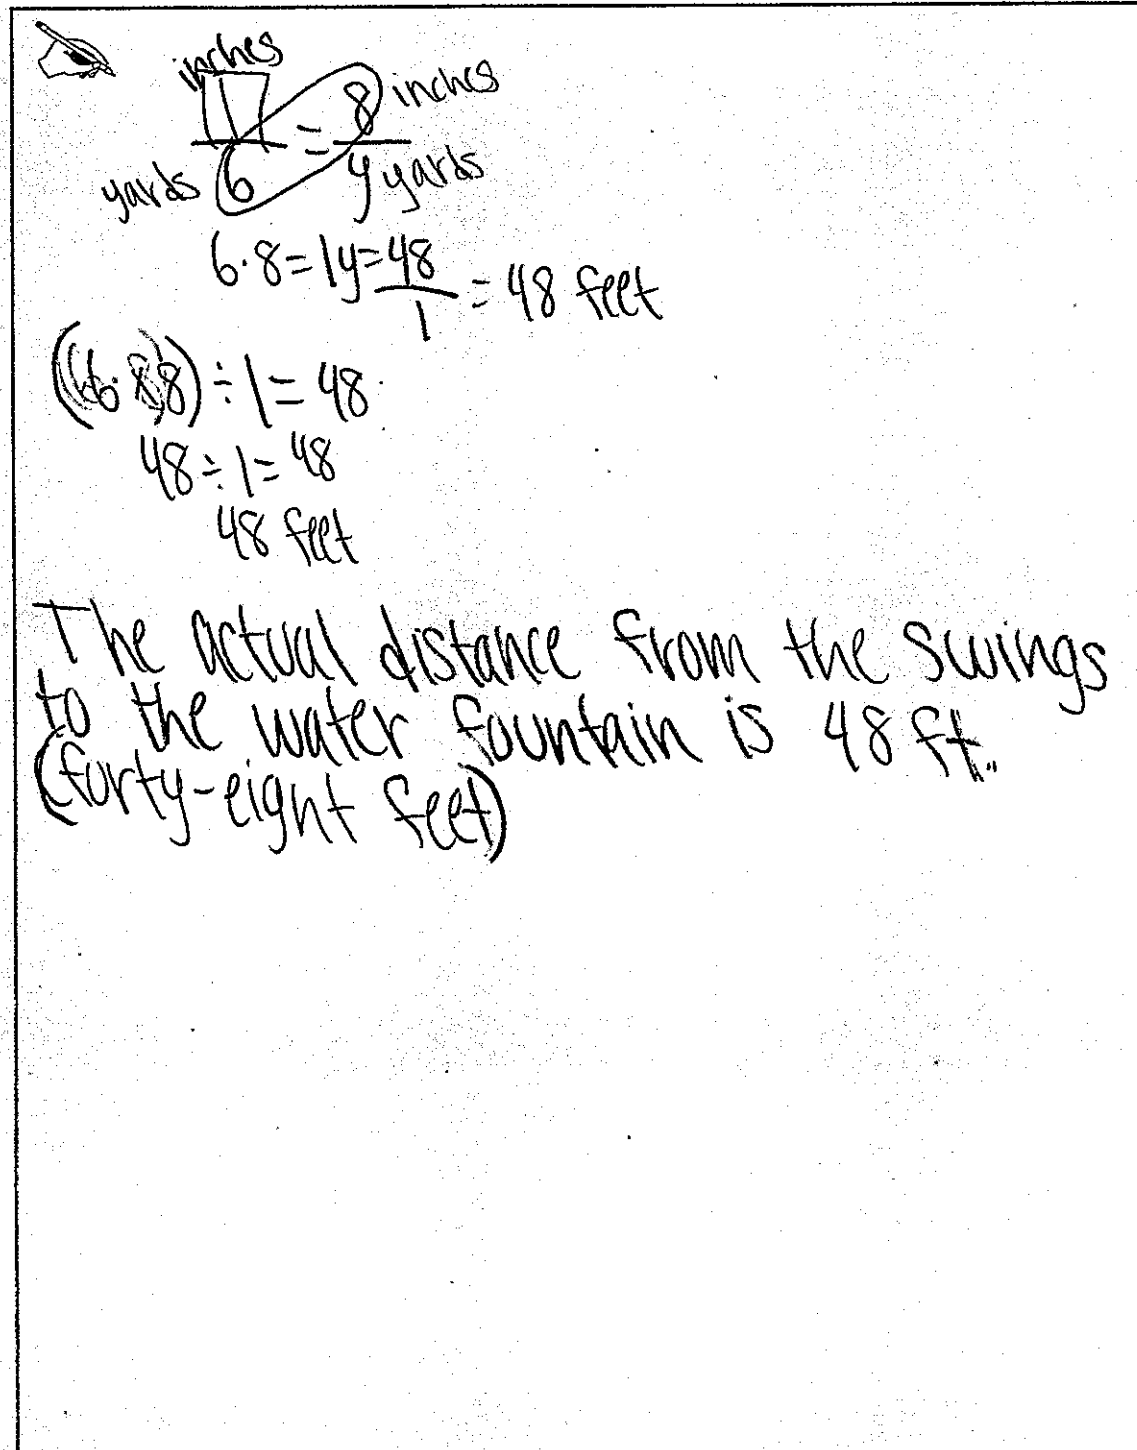 inches
1/6 = 8/y inches
yards yards
6·8=1y=48/1 = 48 feet
(6·8)÷1=48
48÷1=48
48 feet
The actual distance from the swings
to the water fountain is 48 ft.
(forty-eight feet)